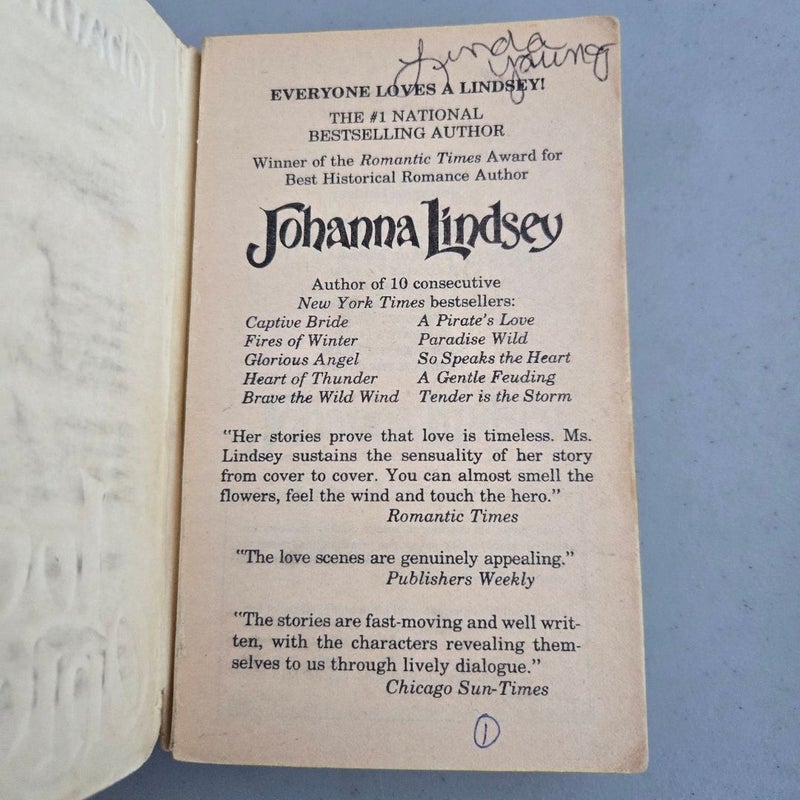 Linda
Young
EVERYONE LOVES A LINDSEY!
THE #1 NATIONAL
BESTSELLING AUTHOR
Winner of the Romantic Times Award for
Best Historical Romance Author
Johanna Lindsey
Author of 10 consecutive
New York Times bestsellers:
Captive Bride A Pirate's Love
Fires of Winter Paradise Wild
Glorious Angel So Speaks the Heart
Heart of Thunder A Gentle Feuding
Brave the Wild Wind Tender is the Storm
"Her stories prove that love is timeless. Ms.
Lindsey sustains the sensuality of her story
from cover to cover. You can almost smell the
flowers, feel the wind and touch the hero."
Romantic Times
"The love scenes are genuinely appealing."
Publishers Weekly
"The stories are fast-moving and well writ-
ten, with the characters revealing them-
selves to us through lively dialogue."
Chicago Sun-Times
1